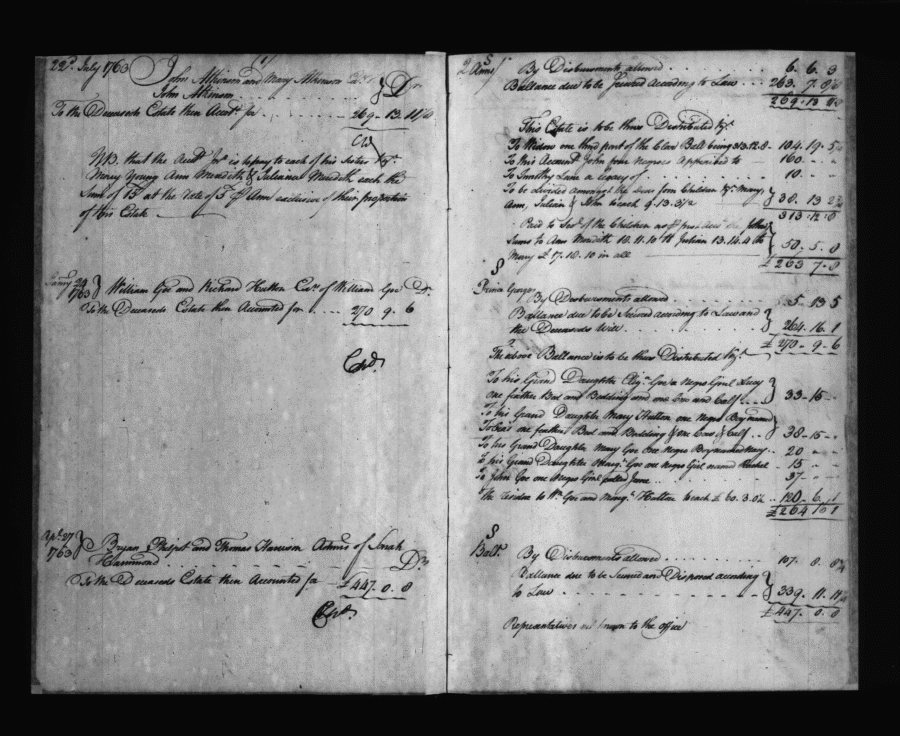 22d. July 1763
John Atkinson and Mary Atkinson
John Atkinson . . . . . Dr
To the Deceaseds Estate then Acctd. for . . . . . 269 - 13 - 11 1/2
NB. that the Acct. is to pay to each of his Sisters Vizt.
Mary Young Ann Meredith & Julianna Meredith each the
Sum of 15 at the rate of 5 P Ann exclusive of their proportion
of this Estate
Janry 29 1763 } William Gov and Richard Hutton Exrs. of William Gov Dr.
To the Deceaseds Estate then Accounted for . . . . 270 9. 6
Exd.
Apl. 27 1763 } Bryan Philpot and Thomas Harrison Admrs. of Sarah
Hammond . . . . . Dr.
To the Deceaseds Estate then Accounted for - £447. 0. 8
Exd.
2 Anns / By Disbursements allowed . . . . . 6. 6. 3
Ballance due to be Secured According to Law . . . 263. 7. 8
269. 13
This Estate is to be thus Distributed Vizt.
To Widow one third part of the Clear Ball being 313.12.8 - 104. 19. 5
To this Accountt. John four Negroes Appraised to - 160 - - -
To Timothy Lane a legacy of . . . . . 10. - -
To be divided amongst the Decds. four Children Vizt. Mary,
Ann, Julian & John each 9. 13. 3 1/2 } 38. 13. 2
313. 12. 8
Paid to of the Children as pr the following
Sums to Ann Meredith 18. 11. 10 to Julian 13. 14. 4 to
Mary £17. 18. 10 in all } 50. 5. 0
£263 7. 8
Prince Georges
By Disbursments allowed . . . . . 5. 13 5
Ballance due to be Secured according to Law and
the Deceaseds Will . . . . . } 264. 16. 1
£270 - 9 - 6
The above Ballance is to be thus Distributed Vizt.
To his Grand Daughter Elizt. Gov a Negro Girl Lucy
one feather Bed and Bedding and one Cow and Calf . . . } 33 - 15 -
To his Grand Daughter Mary Hutton one Negro Boy named
one feather Bed and Bedding & one Cow & Calf . . } 38 - 15 - .
To his Grand Daughter Mary Gov One Negro Boy named Harry . . 20 - -
To his Grand Daughter Margt. Gov one Negro Girl named Rachel - 15 - -
To John Gov one Negro Girl called Jane . . 37 - - -
The residue to Wm. Gov and Margt. Hutton each £60. 3. 0 1/2 . . 120 - 6. 1
£264 16 1
Balt.
By Disbursments allowed . . . . . 107. 8. 8 1/4
Ballance due to be Secured and Disposed according
to Law . . . . . } 339. 11. 11 3/4
£447. 0. 8
Representatives unknown to the office